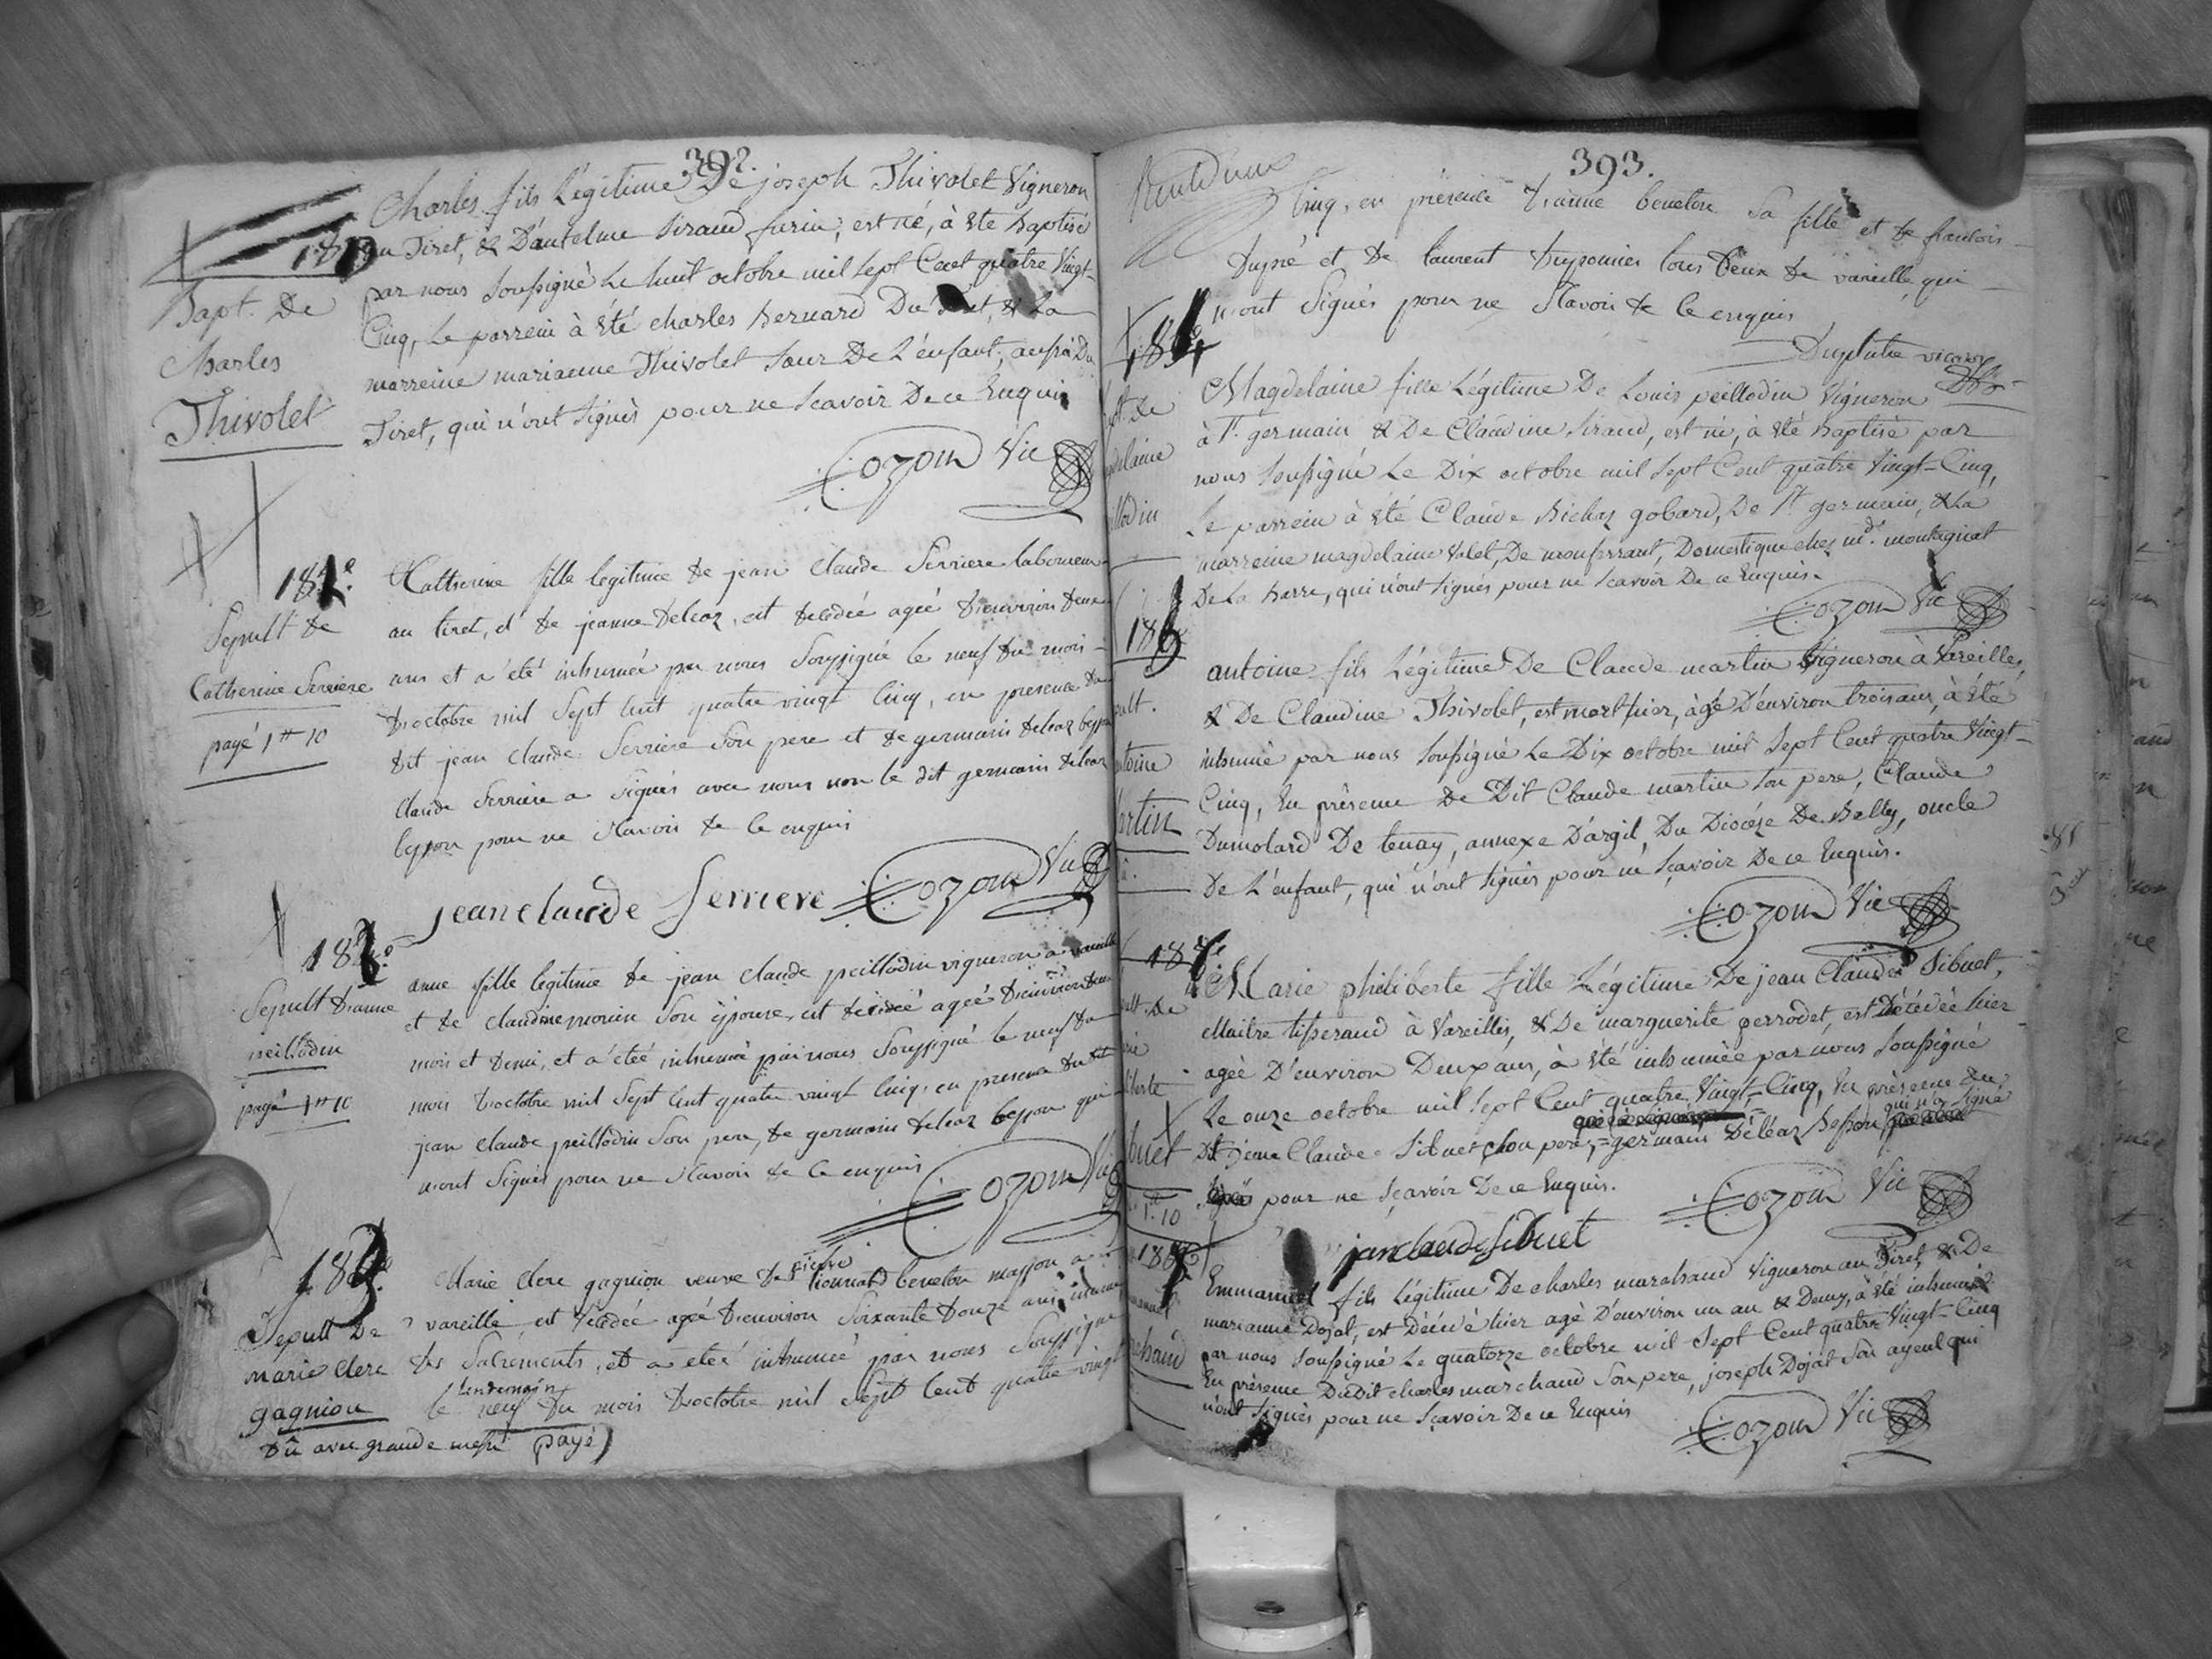 392.
Charles fils Légitime De joseph Thivolet Vigneron
au Tiret, & D'antelme Siraud furin, est né, à été baptisé
par nous soussigné le huit octobre mil sept Cent quatre Vingt-
Cinq, Le parrein à été charles bernard Du Tiret, & La
marreine marianne Thivolet soeur De L'enfant, aussi Du
Tiret, qui n'ont signés pour ne scavoir De ce Enquis
Cozon Vic
Bapt. De
Charles
Thivolet
Catherine fille legitime de jean claude Serriere laboureur
au tiret, et de jeanne deleaz, est decedée ageé d'environ deux
ans et a été inhumeé par nous soussigné le neuf du mois
d'octobre mil sept cent quatre vingt cinq, en presence du
dit jean claude Serriere son pere et de germain deleaz besson
claude Serriere a signés avec nous non le dit germain deleaz
besson pour ne scavoir de ce enquis
jean claude Serriere Cozon Vic
Sepult de
Catherine Serriere
payé 1tt 10
anne fille legitime de jean claude peillodin vigneron a vareille
et de claudine monin son épouse, est decedeé ageé d'environ deux
mois et demi, et a éteé inhumeé par nous soussigné le neuf du
mois d'octobre mil sept cent quatre vingt cinq, en presence du dit
jean claude peillodin son pere, de germain deleaz besson qui
n'ont signés pour ne scavoir de ce enquis
Cozon Vic
Sepult d'anne
peillodin
payé 1tt 10
Marie clere gagniou veuve de pierre lionnard beneton masson a
vareille est decedée ageé d'environ soixante douze ans, munie
des sacrements, et a éteé inhumeé par nous soussigné
le lendemain neuf du mois d'octobre mil sept cent quatre vingt
Sepult De
marie clere
gagniou
dû avec grande messe payé
393.
cinq, en présence d'anne beneton sa fille et de francois
dupré et de laurent duponnier tous deux de vareille, qui
n'ont signés pour ne scavoir de ce enquis
vicaire
Magdelaine fille Légitime De Louis peillodin Vigneron
à St. germain & De Claudine Siraud, est né, à été baptisé par
nous soussigné Le Dix octobre mil sept Cent quatre Vingt-Cinq,
Le parrein à été Claude bichaz gobard, De St. germain, & La
marreine magdelaine Valet, De monferrant, Domestique chez md. montagnat
De La barre, qui n'ont signés pour ne scavoir De ce Enquis.
Cozon Vic
antoine fils Légitime De Claude martin Vigneron à Vareilles,
& De Claudine Thivolet, est mort hier, àgé D'environ trois ans, à été
inhumé par nous soussigné Le Dix octobre mil sept Cent quatre Vingt-
Cinq, En présence De Dit Claude martin son pere, Claude
Dumolard De tenay, annexe D'argil, Du Diocése De Belley, oncle
De L'enfant, qui n'ont signés pour ne sçavoir De ce Enquis.
Cozon Vic
Marie philiberte fille Légitime De jean Claude Sibuet,
Maitre tisserand à Vareilles, & De marguerite perrodet, est Décédée hier
ageé D'environ Deux ans, à été inhumée par nous soussigné
Le onze octobre mil sept Cent quatre Vingt-Cinq, En présence Du
Dit jean Claude Sibuet son pere, germain Déléaz besson qui n'a signé
pour ne sçavoir De ce Enquis.
Cozon Vic
jean claude Sibuet
Emmanuel fils Légitime De charles marchand Vigneron au Tiret, & De
marianne Dojat, est Décédé hier agé D'environ un an & Demy, à été inhumé
par nous soussigné Le quatorze octobre mil sept Cent quatre Vingt-Cinq
En présence Du Dit charles marchand son pere, joseph Dojat son ayeul qui
n'ont signés pour ne sçavoir De ce Enquis
Cozon Vic